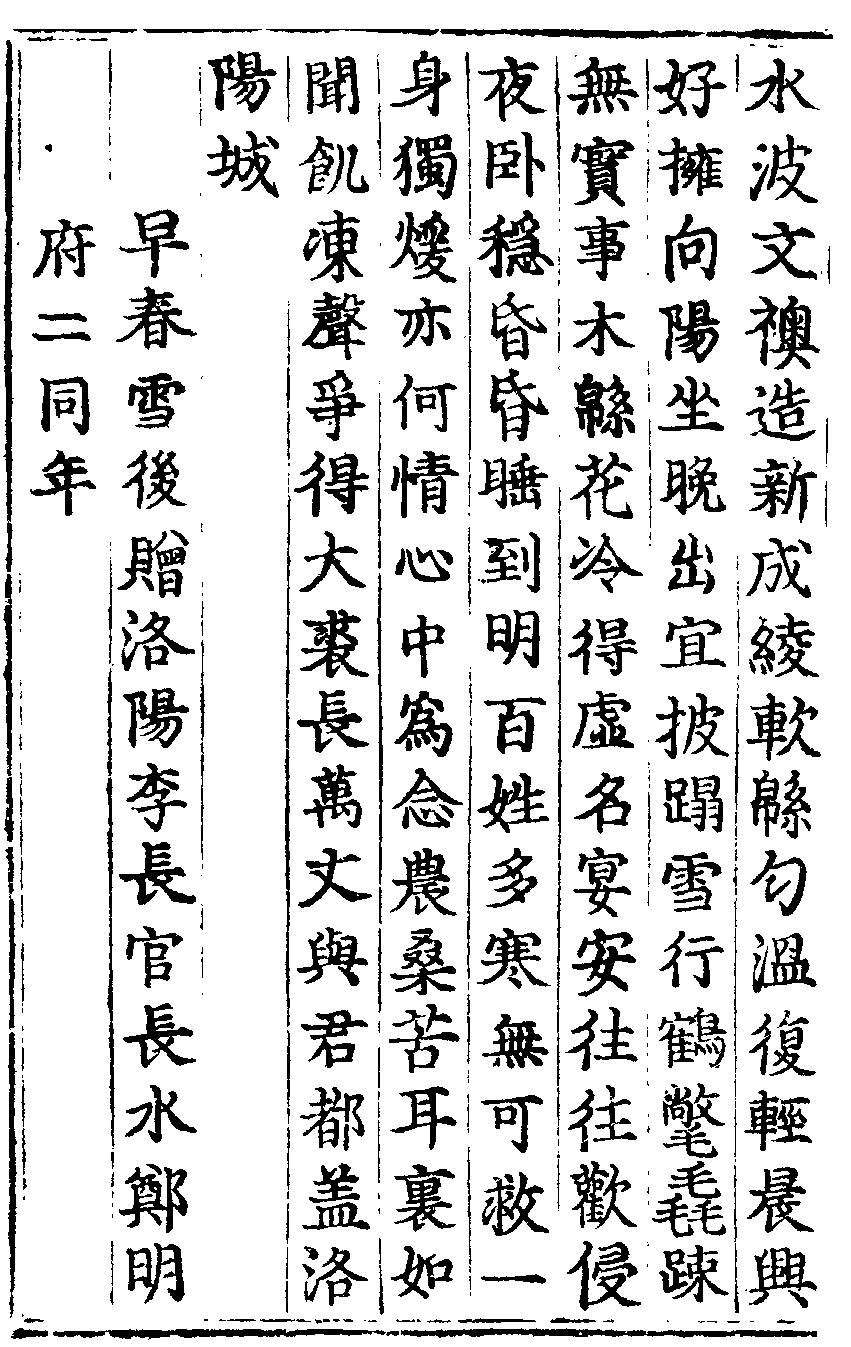 水波文襖造新成綾軟緜勻溫復輕晨興
好擁向陽坐晚出宜披蹋雪行鶴氅毳踈
無實事木緜花冷得虛名宴安往往歡侵
夜卧穩昏昏睡到明百姓多寒無可救一
身獨煖亦何情心中爲念農桑苦耳裏如
聞飢凍聲爭得大裘長萬丈與君都盖洛
陽城
早春雪後贈洛陽李長官長水鄭明
府二同年